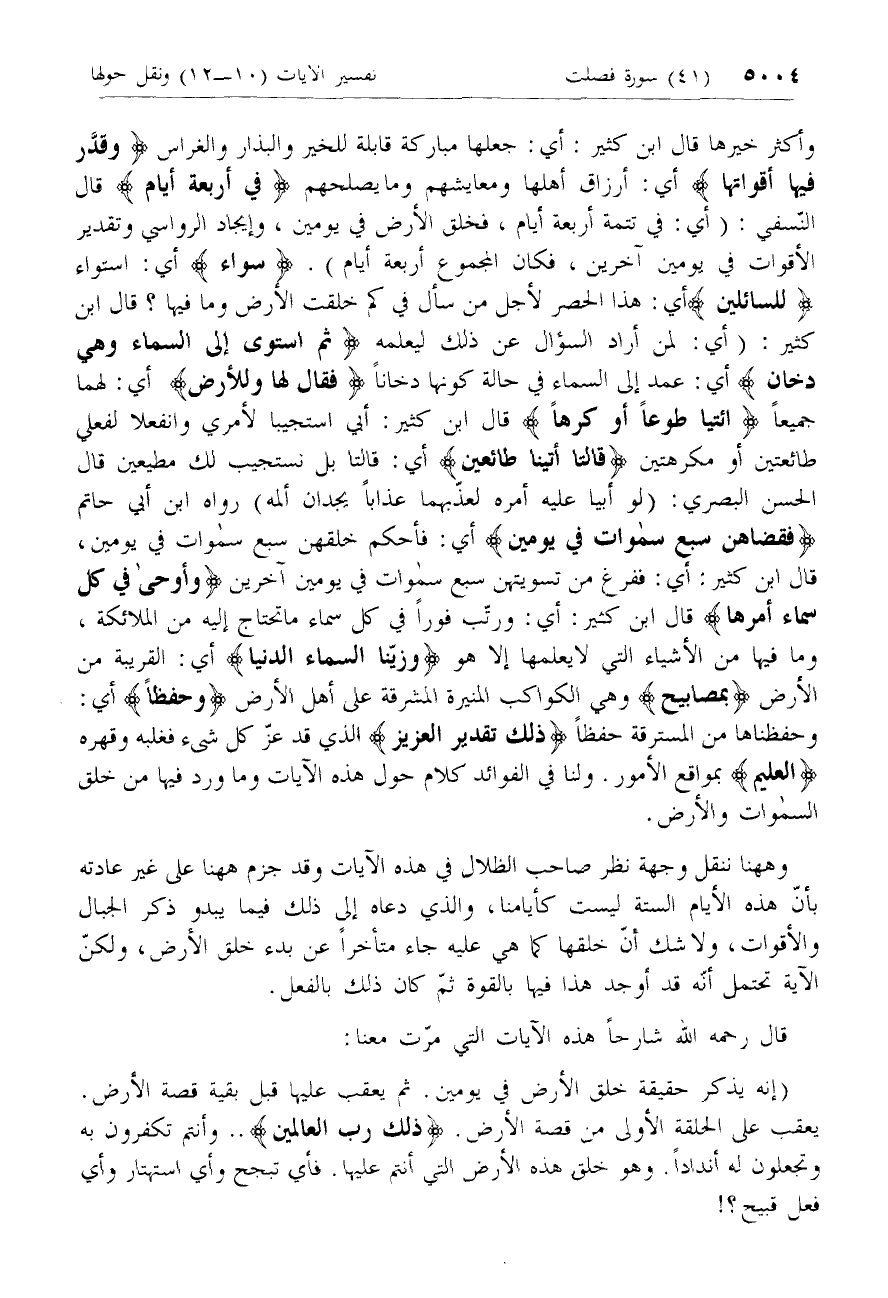 ٥٠٠٤ (٤١) سورة فصلت تفسير الآيات (١٠ــ١٢) ونقل حولها
وأكثر خيرها قال ابن كثير : أي : جعلها مباركة قابلة للخير والبذار والغراس ﴿ وقدَّر
فيها أقواتها ﴾ أي : أرزاق أهلها ومعايشهم ومايصلحهم ﴿ في أربعة أيام ﴾ قال
النّسفي : ( أي : في تتمة أربعة أيام ، فخلق الأرض في يومين ، وإيجاد الرواسي وتقدير
الأقوات في يومين آخرين ، فكان المجموع أربعة أيام ) . ﴿ سواء ﴾ أي : استواء
﴿ للسائلين ﴾أي : هذا الحصر لأجل من سأل في كم خلقت الأرض وما فيها ؟ قال ابن
كثير : ( أي : لمن أراد السؤال عن ذلك ليعلمه ﴿ ثم استوى إلى السماء وهي
دخان ﴾ أي : عمد إلى السماء في حالة كونها دخاناً ﴿ فقال لها وللأرض﴾ أي : لهما
جميعاً ﴿ ائتيا طوعاً أو كرهاً ﴾ قال ابن كثير : أبي استجيبا لأمري وانفعلا لفعلي
طائعتين أو مكرهتين ﴿قالتا أتينا طائعين﴾ أي : قالتا بل نستجيب لك مطيعين قال
الحسن البصري : (لو أبيا عليه أمره لعذّبهما عذاباً يجدان ألمه) رواه ابن أبي حاتم
﴿فقضاهن سبع سمٰوات في يومين﴾ أي : فأحكم خلقهن سبع سمٰوات في يومين ،
قال ابن كثير : أي : ففرغ من تسويتهن سبع سمٰوات في يومين آخرين ﴿وأوحىٰ في كل
سماء أمرها﴾ قال ابن كثير : أي : ورتّب فوراً في كل سماء ماتحتاج إليه من الملائكة ،
وما فيها من الأشياء التي لايعلمها إلا هو ﴿وزيّنا السماء الدنيا﴾ أي : القريبة من
الأرض ﴿بمصابيح﴾ وهي الكواكب المنيرة المشرقة على أهل الأرض ﴿وحفظاً﴾ أي :
وحفظناها من المسترقة حفظاً ﴿ذلك تقدير العزيز﴾ الذي قد عزّ كل شيء فغلبه وقهره
﴿العليم﴾ بمواقع الأمور . ولنا في الفوائد كلام حول هذه الآيات وما ورد فيها من خلق
السمٰوات والأرض .
وههنا ننقل وجهة نظر صاحب الظلال في هذه الآيات وقد جزم ههنا على غير عادته
بأنّ هذه الأيام الستة ليست كأيامنا ، والذي دعاه إلى ذلك فيما يبدو ذكر الجبال
والأقوات ، ولاشك أنّ خلقها كما هي عليه جاء متأخراً عن بدء خلق الأرض ، ولكنّ
الآية تحتمل أنّه قد أوجد هذا فيها بالقوة ثمّ كان ذلك بالفعل .
قال رحمه الله شارحاً هذه الآيات التي مرّت معنا :
(إنه يذكر حقيقة خلق الأرض في يومين . ثم يعقب عليها قبل بقية قصة الأرض .
يعقب على الحلقة الأولى من قصة الأرض . ﴿ذلك رب العالمين﴾ .. وأنتم تكفرون به
وتجعلون له أنداداً . وهو خلق هذه الأرض التي أنتم عليها . فأي تبجح وأي استهتار وأي
فعل قبيح ؟!